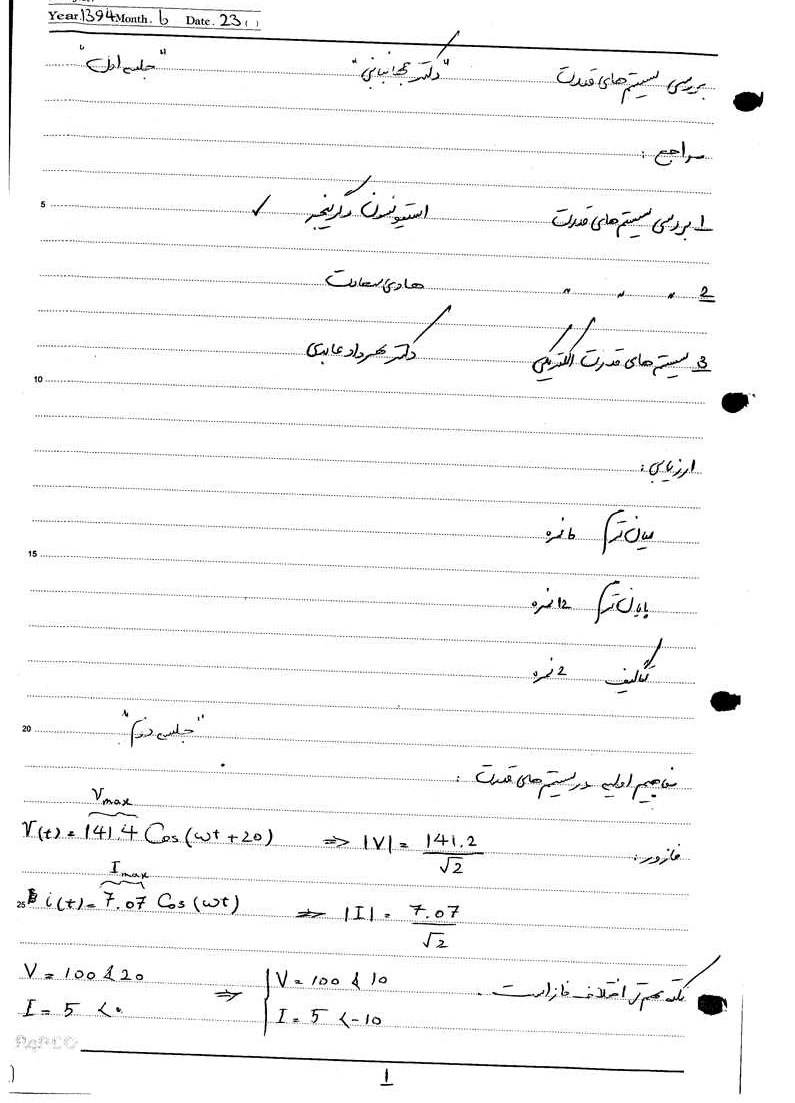 Year. 1394 Month. 6 Date. 23 ( )
بررسی سیستم های قدرت "دکتر جهانبانی" "جلسه اول"
مراجع :
1 بررسی سیستم های قدرت استیونسون و گرینجر ✓
5
2 " " " هادی سعادت
3 سیستم های قدرت الکتریکی دکتر مهرداد عابدی
10
ارزیابی :
میان ترم 6 نمره
15
پایان ترم 12 نمره
تکالیف 2 نمره
"جلسه دوم"
20
مفاهیم اولیه در سیستم های قدرت :
Vmax
فازور : V(t) = 141.4 Cos(ωt + 20) ⇒ |V| = 141.2 / √2
Imax
25 i(t) = 7.07 Cos(ωt) ⇒ |I| = 7.07 / √2
V = 100 ∡ 20 ⇒ { V = 100 ∡ 10 نکته مهم تر اختلاف فاز است .
I = 5 < 0 I = 5 < -10
PAPCO
1